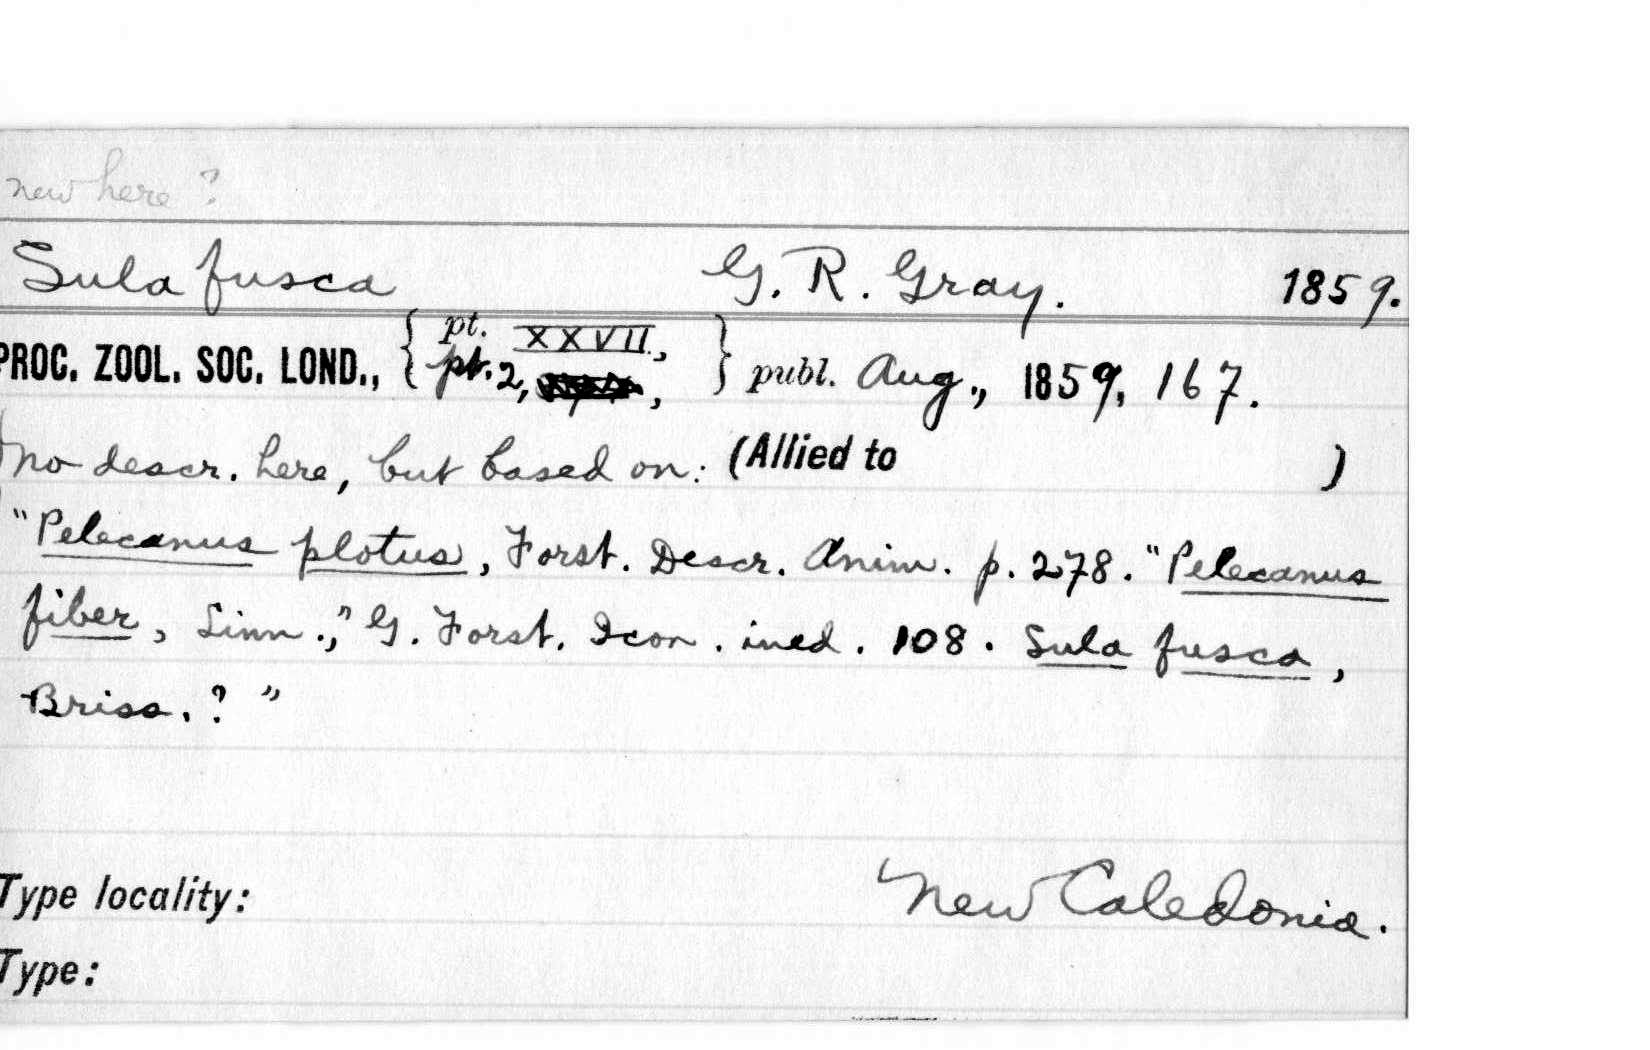 new here?
Sula fusca G. R. Gray. 1859.
PROC. ZOOL. SOC. LOND., { pt. XXVII., pt. 2, , } publ. Aug., 1859, 167.
no descr. here, but based on: (Allied to )
"Pelecanus plotus, Forst. Descr. Anim. p. 278. "Pelecanus
fiber, Linn.," G. Forst. Icon. ined. 108. Sula fusca,
Briss.? "
Type locality: New Caledonia.
Type: